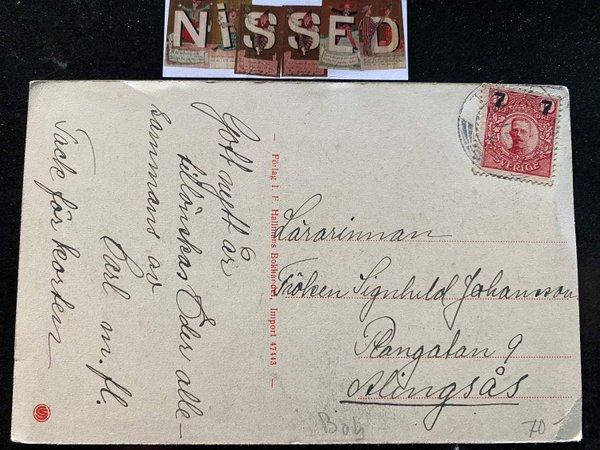 NiSSED
Gott nytt år
tillönskas Eder alle-
sammans av
Carl m. fl.
Tack för korten
Förlag I. F. Hallmans Bokhandel, Import 47443
7 7
SVERIGE
Lärarinnan
Fröken Signhild Johansson
Plangatan 9
Alingsås
70